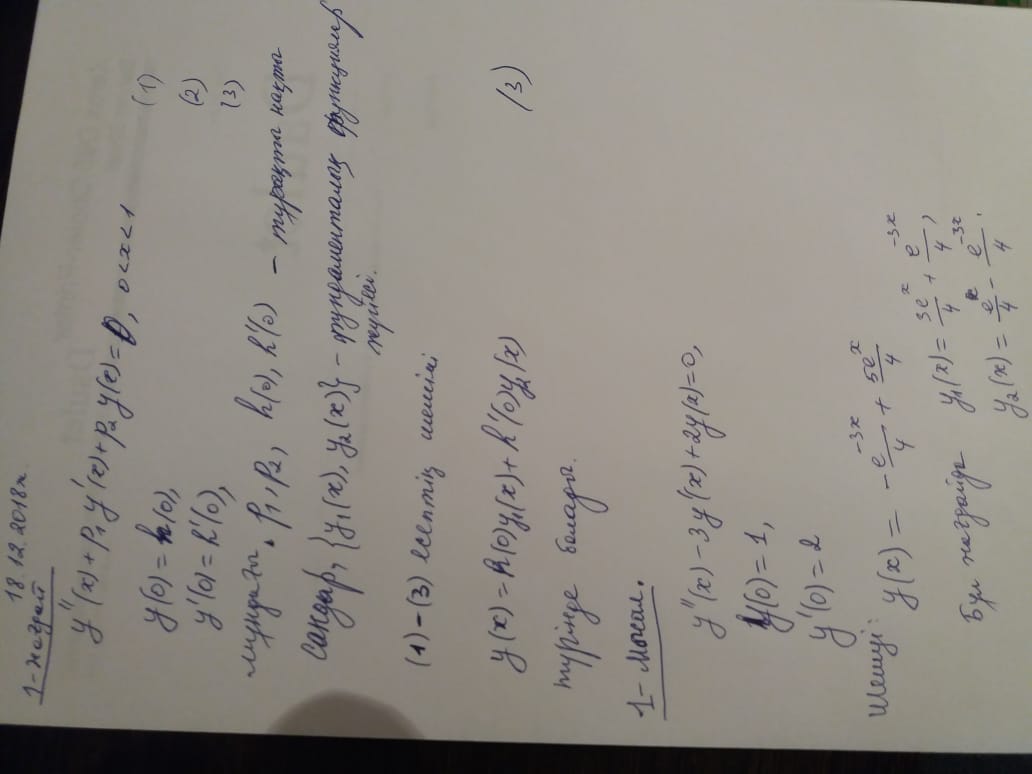 18.12.2018ж.
1-жағдай
y''(x) + p₁ y'(x) + p₂ y(x) = 0, 0 < x < 1 (1)
y(0) = h(0), (2)
y'(0) = h'(0), (3)
мұндағы p₁, p₂, h(0), h'(0) – тұрақты нақты
сандар, {y₁(x), y₂(x)} – фундаменталық функциялар
жүйесі.
(1) – (3) есептің шешімі
y(x) = h(0)y₁(x) + h'(0)y₂(x) (3)
түрінде болады.
1 - Мысал.
y''(x) - 3y'(x) + 2y(x) = 0,
y(0) = 1,
y'(0) = 2
Шешуі: y(x) = - e^{-3x}/4 + 5e^{x}/4
Бұл жағдайда y₁(x) = 3e^{x}/4 + e^{-3x}/4,
y₂(x) = e^{x}/4 - e^{-3x}/4.